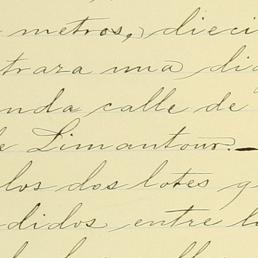 metros, dieci
traza una dia
nda calle de
de Limantour.
los dos lotes q
didos entre lo